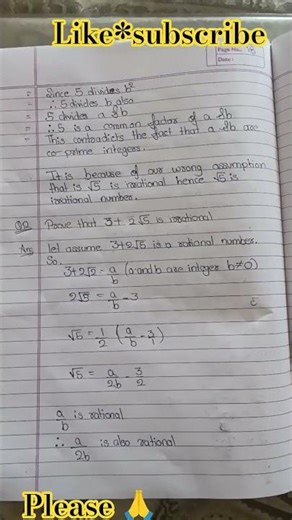 Like*subscribe
Page No. 18
Date :
= Since 5 divides b²
= ∴ 5 divides b also
= 5 divides a & b
= ∴ 5 is a common factor of a & b
This contradicts the fact that a & b are
co-prime integers.
It is because of our wrong assumption
that is √5 is rational hence √5 is
irrational number.
Q2 Prove that 3 + 2√5 is irrational
Ans let assume 3+2√5 is a rational number.
So,
3+2√5 = a/b (a and b are integer b≠0)
2√5 = a/b - 3
√5 = 1/2 (a/b - 3/1)
√5 = a/2b - 3/2
a/b is rational
∴ a/2b is also rational
Please 🙏